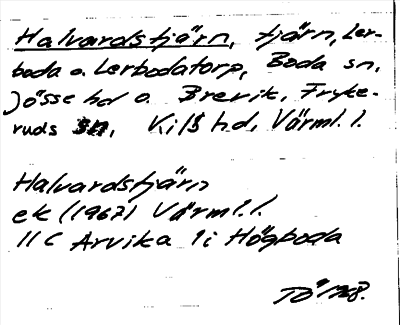 Halvardstjärn, tjärn, Ler-
boda o. Lerbodatorp, Boda sn,
Jösse hd o. Brevik, Fryke-
ruds sn, Kils hd, Värml. l.
Halvardstjärn
ek (1967) Värml. l.
11 C Arvika 1 i Högboda
TÖ 1968.